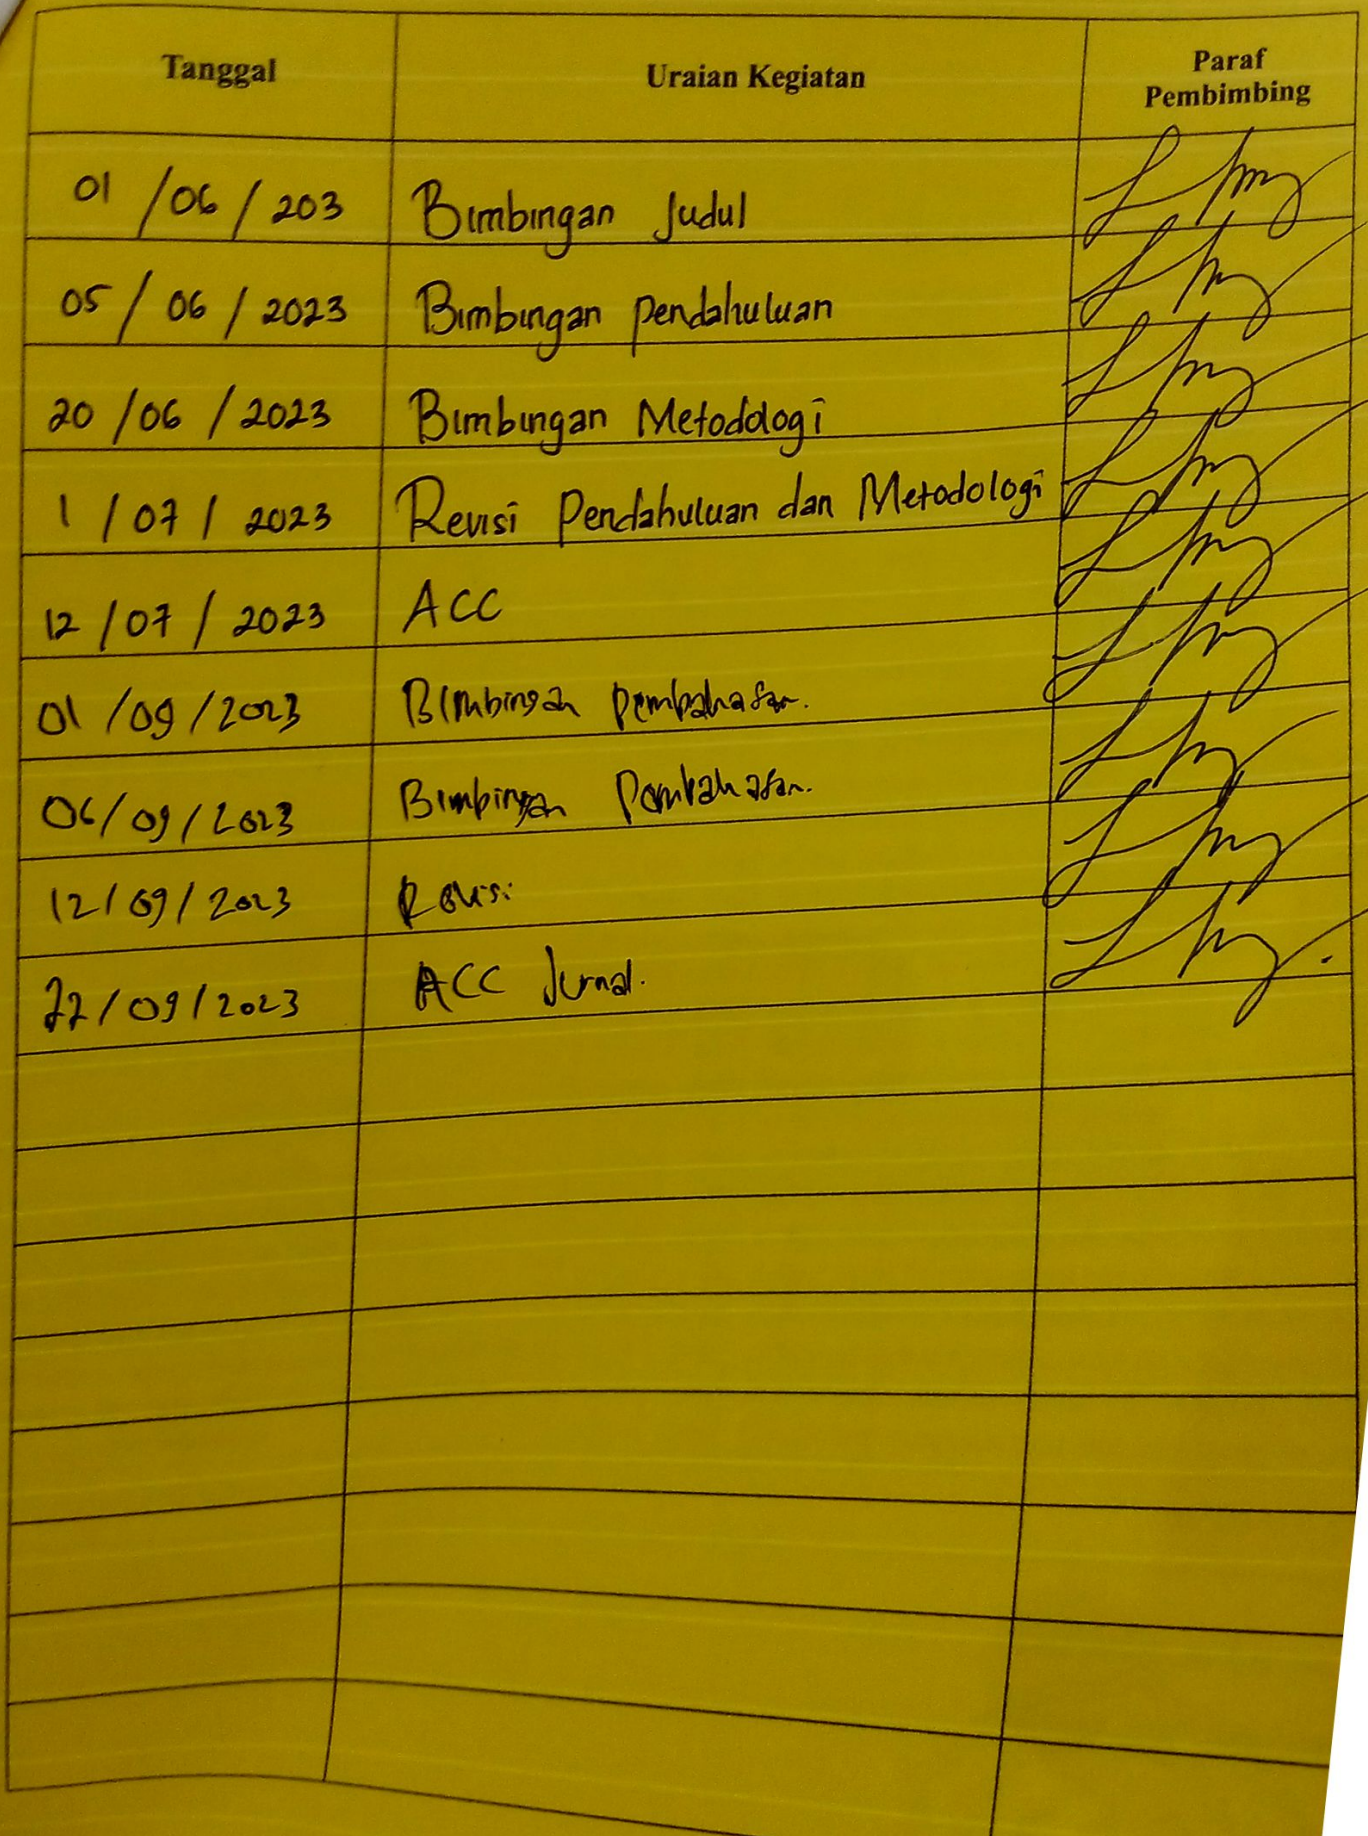 Tanggal Uraian Kegiatan Paraf Pembimbing
01 / 06 / 203 Bimbingan Judul
05 / 06 / 2023 Bimbingan Pendahuluan
20 / 06 / 2023 Bimbingan Metodologi
1 / 07 / 2023 Revisi Pendahuluan dan Metodologi
12 / 07 / 2023 ACC
01 / 09 / 2023 Bimbingan Pembahasan.
06 / 09 / 2023 Bimbingan Pembahasan.
12 / 09 / 2023 Revisi
22 / 09 / 2023 ACC Jurnal.